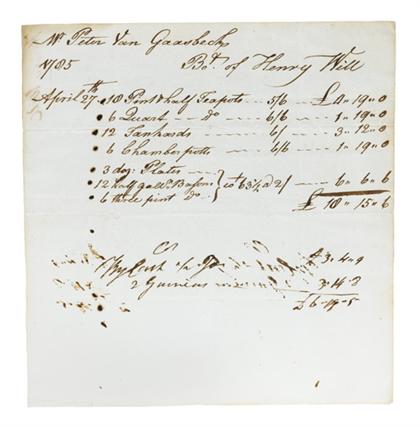 Mr Peter Van Gaasbeck
1785 Bot. of Henry Will
April 27th 18 Pint & half Teapots 5/6 £4"19"0
6 Quart do 6/6 1"19"0
12 Tankards 6/ 3"12"0
6 Chamberpots 6/6 1"19"0
3 doz: Plates
12 half gall. Basons 2/ 6"6"6
6 three pint do. £18"15"6
Cr
By Cash £3"4"9
2 Guineas 3"14"8
£6"19"5